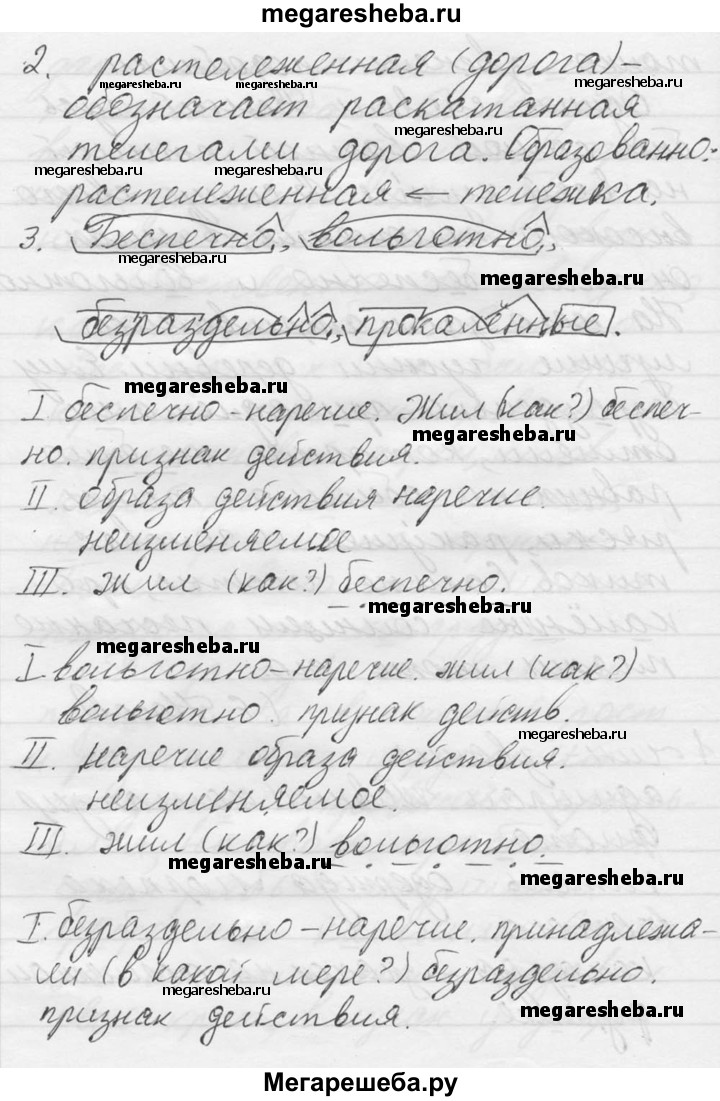 megaresheba.ru
2. растележенная (дорога)-
megaresheba.ru megaresheba.ru
обозначает раскатанная
megaresheba.ru
телегами дорога. Образованно:
megaresheba.ru megaresheba.ru
растележенная ← тележка.
3. Беспечно, вольготно,
megaresheba.ru
megaresheba.ru
безраздельно, прокалённые.
megaresheba.ru
I беспечно-наречие. Жил (как?) беспеч-
megaresheba.ru
но. признак действия.
II. образа действия наречие.
неизменяемое
III. жил (как?) беспечно.
megaresheba.ru
megaresheba.ru
I вольготно-наречие. жил (как?)
вольготно. признак действ.
megaresheba.ru
II. наречие образа действия.
неизменяемое.
III. жил (как?) вольготно.
megaresheba.ru
megaresheba.ru
I. безраздельно-наречие. принадлежа-
ли (в какой мере?) безраздельно.
megaresheba.ru
признак действия.
megaresheba.ru
Мегарешеба.ру